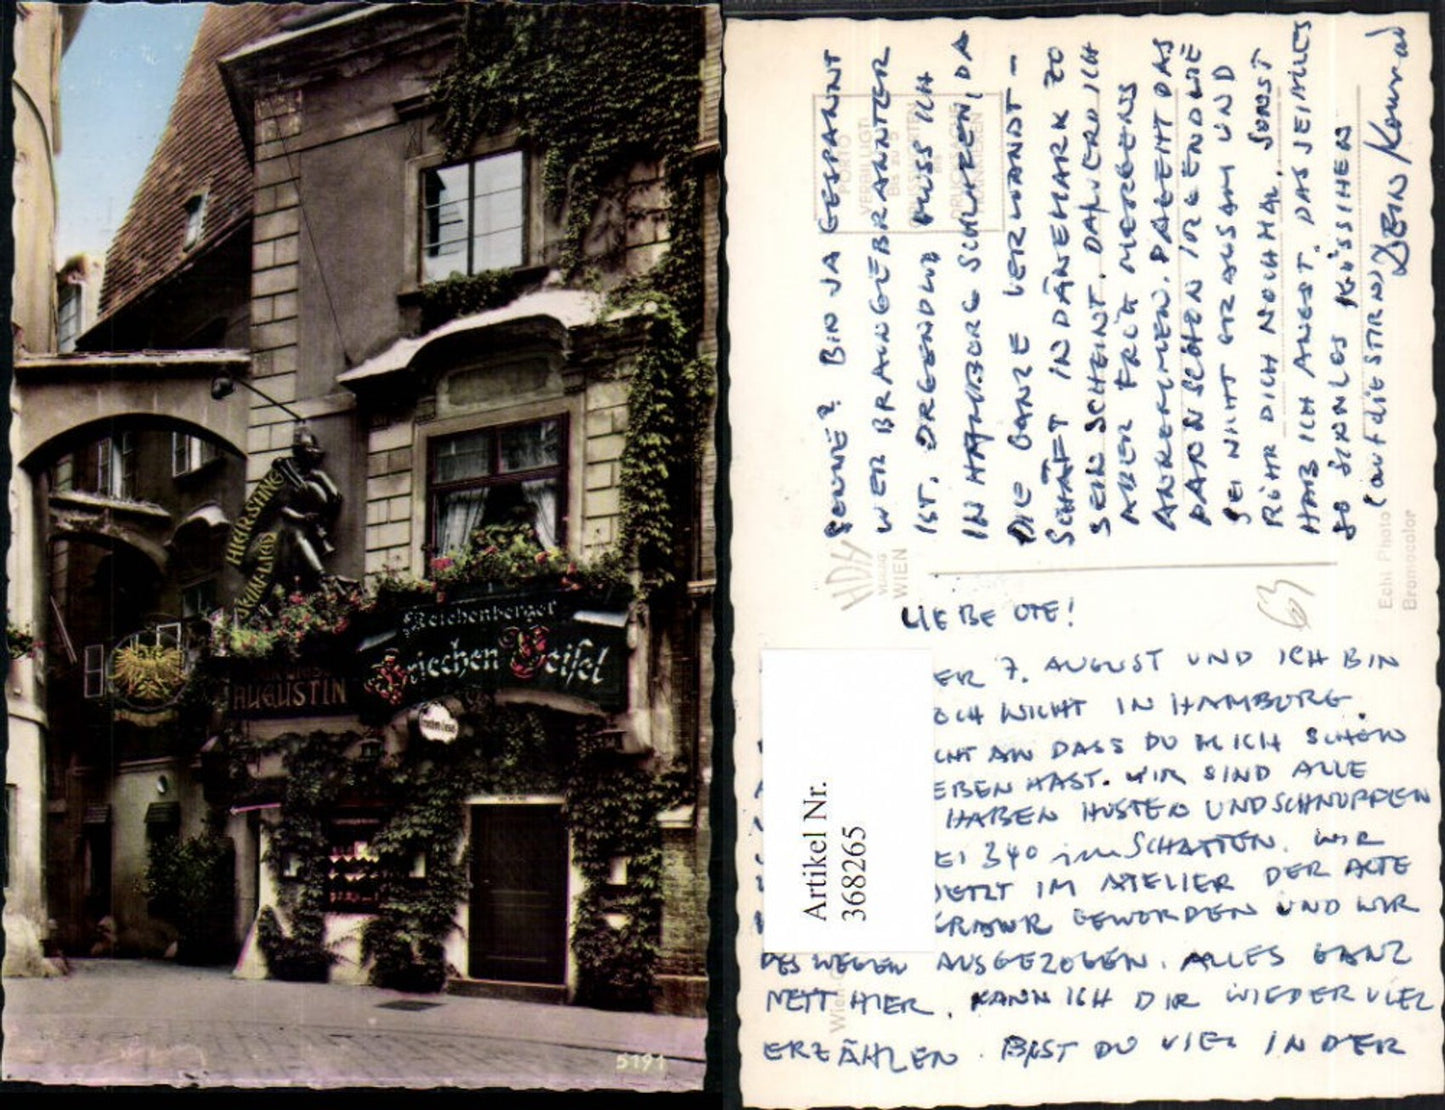 HIER SANG
AUGUSTIN
Reichenberger
Griechen Beisl
5191
LIEBE UTE!
ER 7. AUGUST UND ICH BIN
OCH NICHT IN HAMBURG.
CHT AN DASS DU MICH SCHÖN
EBEN HAST. WIR SIND ALLE
HABEN HUSTEN UND SCHNUPFEN
EI 34° im SCHATTEN. WIR
JETZT IM ATELIER DER AKTE
GEWORDEN UND WIR
DESWEGEN AUSGEZOGEN. ALLES GANZ
NETT HIER. KANN ICH DIR WIEDER VIEL
ERZÄHLEN. BIST DU VIEL IN DER
SONNE? BIN JA GESPANNT
WER BRAUNGEBRANNTER
IST. IRGENDWO MUSS ICH
IN HAMBURG SCHLAFEN, DA
DIE GANZE VERWANDT-
SCHAFT IN DÄNEMARK ZU
SEIN SCHEINT. DA WERD ICH
ABER FRÜH MORGENS
ANKOMMEN. DA GEHT DAS
DANN SCHON IRGENDWIE
SEI NICHT GRAUSAM UND
RÜHR DICH NOCHMAL. SONST
HAB ICH ANGST. DAS JEMALS
KÜSSCHEN
(auf die STIRN)
DEIN Konrad
Artikel Nr.
368265
63
HDH
VERLAG
WIEN
PORTO
VERBILLIGT:
Bis zu 5
DRUCKSACHE
FRANKIEREN
Echt Photo
Bromocolor
Wien